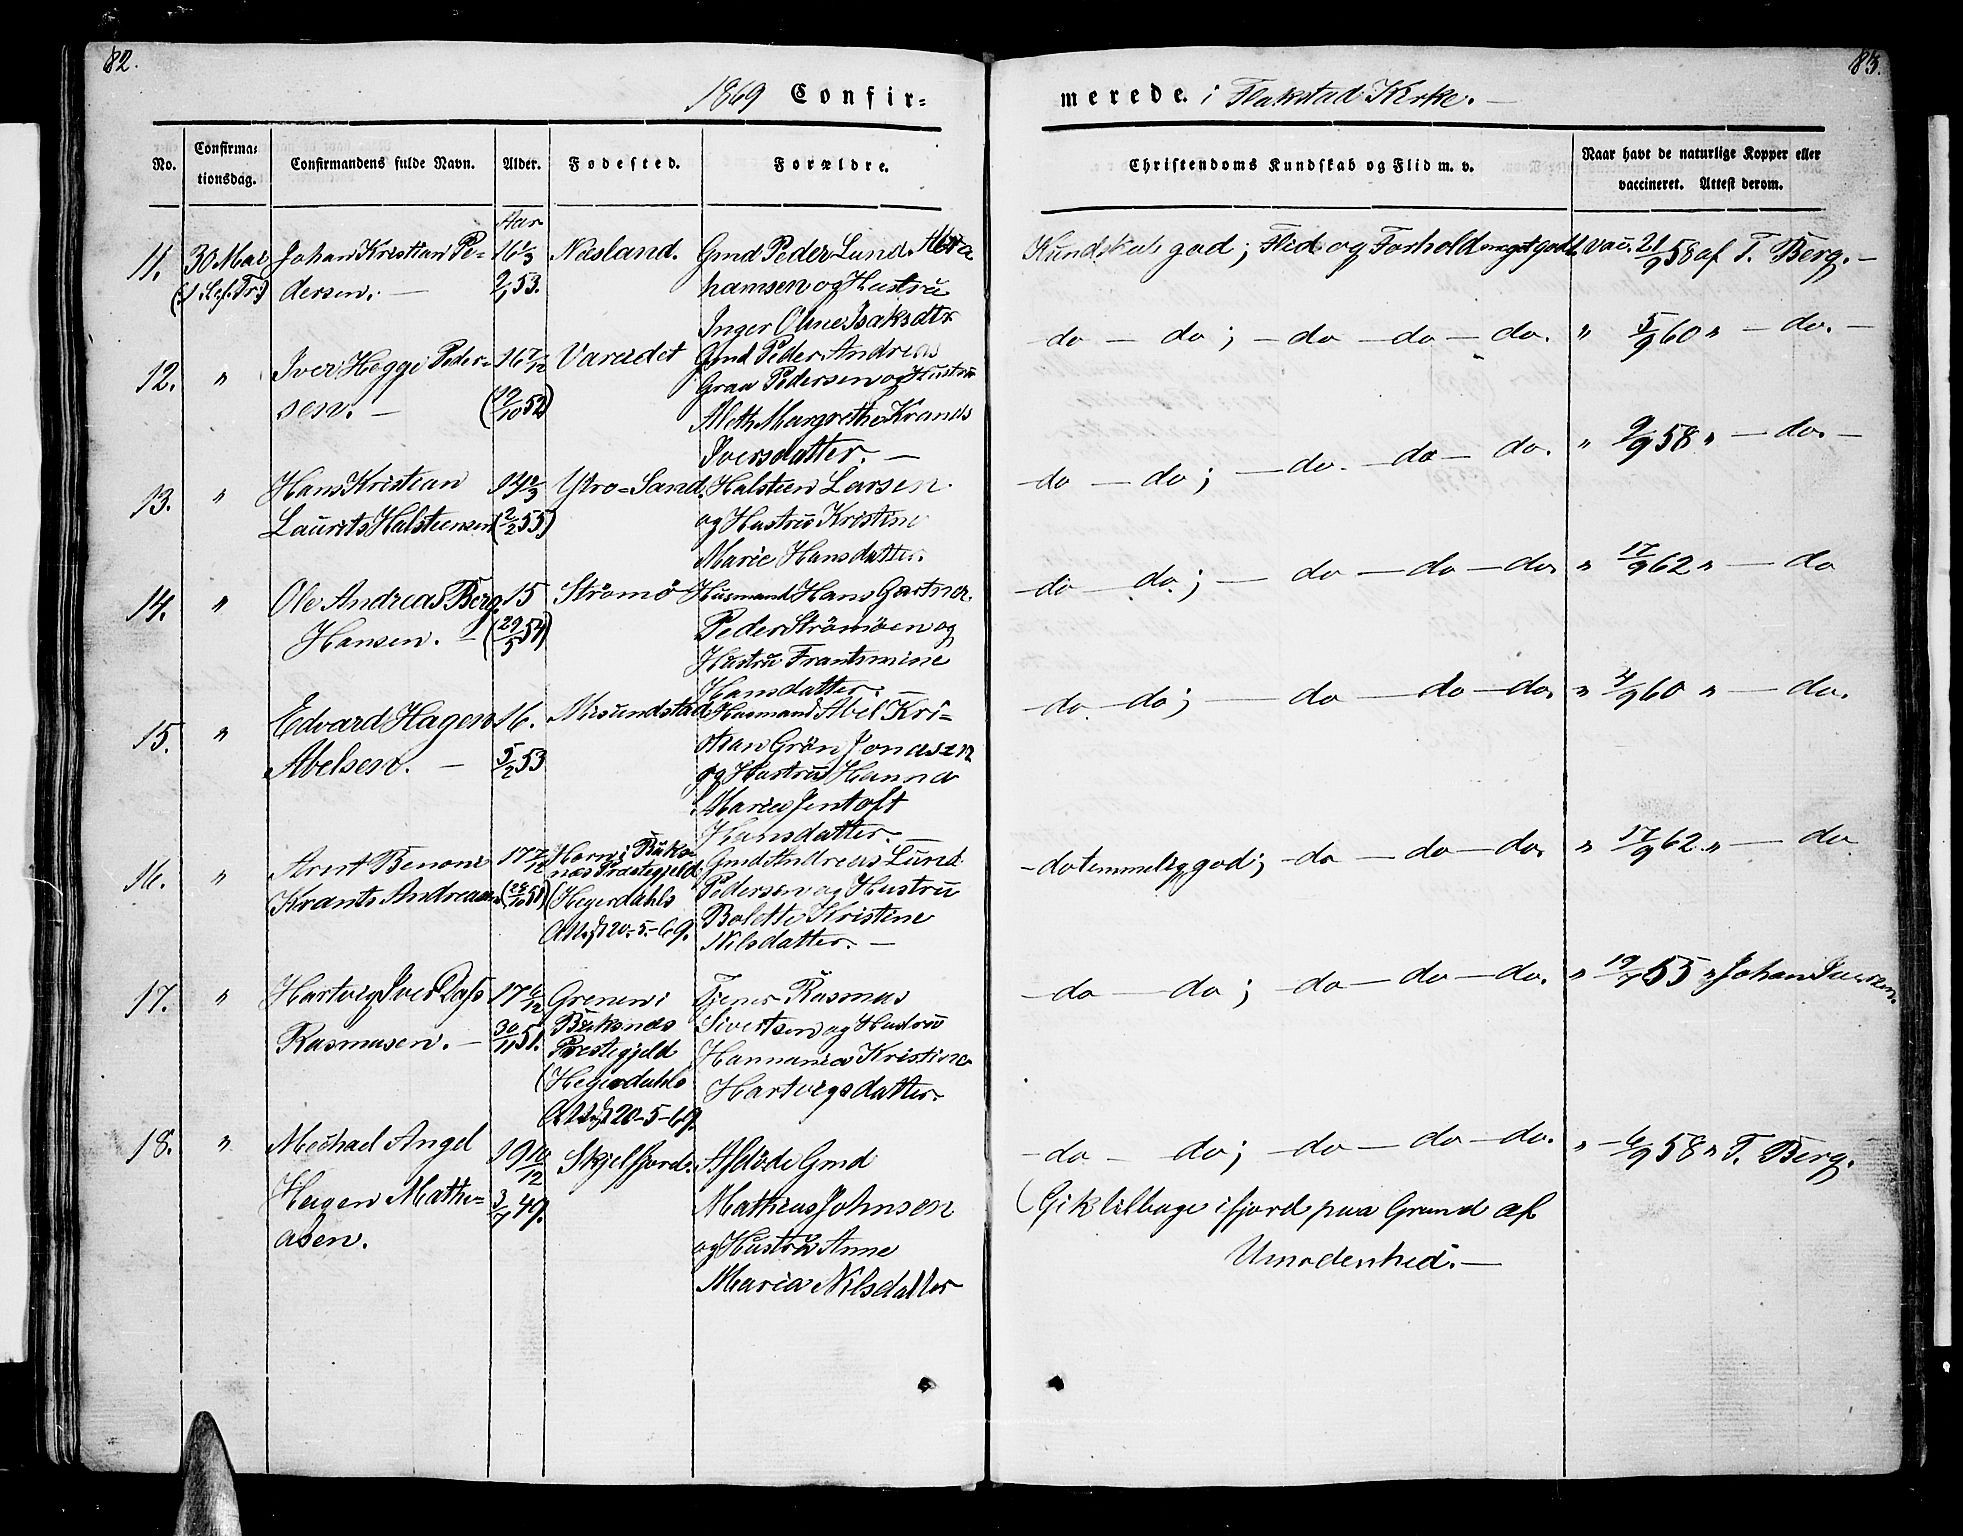 82.
83.
1869 Confir=
merede. i Flakstad Kirke. —
No.
Confirma=
tionsdag.
Confirmandens fulde Navn.
Alder.
Fødested.
Forældre.
Christendoms Kundskab og Flid m. v.
Naar havt de naturlige Kopper eller
vaccineret. Attest derom.
Aar
11.
30 Mai
(1 S. ef. Tr.)
Johan Kristian Pe-
dersen. —
16 1/3
2/1 53.
Næsland.
Gmd Peder Lund Abra
hamsen og Hustru
Inger Oline Isaksdtr
Kundskab god; Flid og Forhold meget godt.
vac. 21/9 58 af T. Berg. —
12.
"
Iver Hegge Peder-
sen. —
16 7/12
(19/10 52)
Vareidet
Gmd Peder Andreas
Graa Pedersen og Hustru
Aleth Margrethe Krands
Iversdatter. —
do — do; — do — do — do.
" 5/9 60 " — do. —
13.
"
Hans Kristian
Laurits Halsteensen
14 1/3
(2/2 55)
Ytre=Sand.
Halsteen Larsen
og Hustru Kristine
Marie Hansdatter.
do — do; — do. — do — do.
" 9/9 58 " — do. —
14.
"
Ole Andreas Berg
Hansen. —
15
(29/5 54)
Strømø
Husmand Hans Gartner
Peder Strømøen og
Hustru Frantsmine
Hansdatter.
do — do.; — do — do — do.
" 17/9 62 " — do
15.
"
Edvard Hagen
Abelsen. —
16.
5/2 53
Misundstad
Husmand Abel Kri-
stian Grøn Jonassen
og Hustru Hanna
Marie Jentoft
Hansdatter. —
do — do; — do — do — do.
" 4/9 60 " — do.
16.
"
Arnt Benoni
Krants Andreassen
17 7/12
(28/10 51)
Horn i Buks-
næs Præstegjeld
(Heyerdahls
Attest 20-5-69.
Gmd Andreas Lund
Pedersen og Hustru
Bolette Kristine
Nilsdatter. —
- do temmelig god; — do — do — do.
" 17/9 62 " — do
17.
"
Hartvig Iver Dass
Rasmusen. —
17 6/12
30/11 51.
Grenen i
Buksnæs
Præstegjeld
(Heyerdahls
Attest 20-5-69.
Tjener Rasmus
Sivertsen og Hustru
Hannania Kristine
Hartvigsdatter.
— do — do; — do — do — do.
" 19/7 55 " Johan Iversen.
18.
"
Mechael Angel
Heigen Mathi-
asen.
19 10/12
3/7 49.
Skjelfjord.
Afdøde Gmd
Mathias Johnsen
og Hustru Anne
Maria Nilsdatter
— do — do; — do — do — do.
" 6/9 58 " T. Berg.
(Gik tilbage ifjord paa Grund af
Umodenhed. —